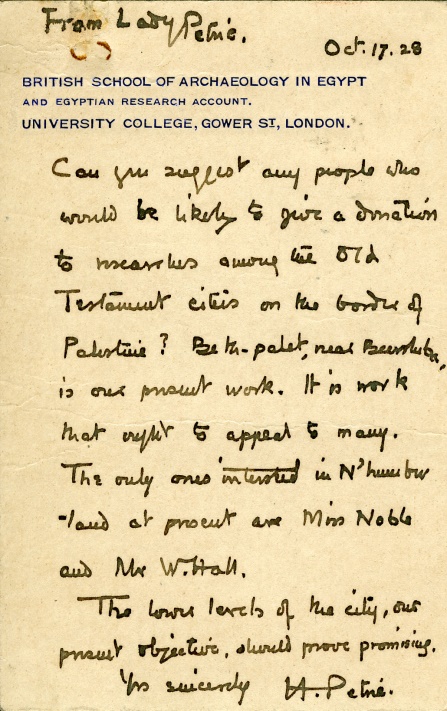 From Lady Petrie.
Oct. 17. 28
BRITISH SCHOOL OF ARCHAEOLOGY IN EGYPT
AND EGYPTIAN RESEARCH ACCOUNT.
UNIVERSITY COLLEGE, GOWER ST, LONDON.
Can you suggest any people who
would be likely to give a donation
to researches among the Old
Testament cities on the border of
Palestine? Beth-palet, near Beersheba,
is our present work. It is work
that ought to appeal to many.
The only ones interested in N'humber
-land at present are Miss Noble
and Mr W. Hall.
The lower levels of the city, our
present objective, should prove promising.
Yrs sincerely H. Petrie.